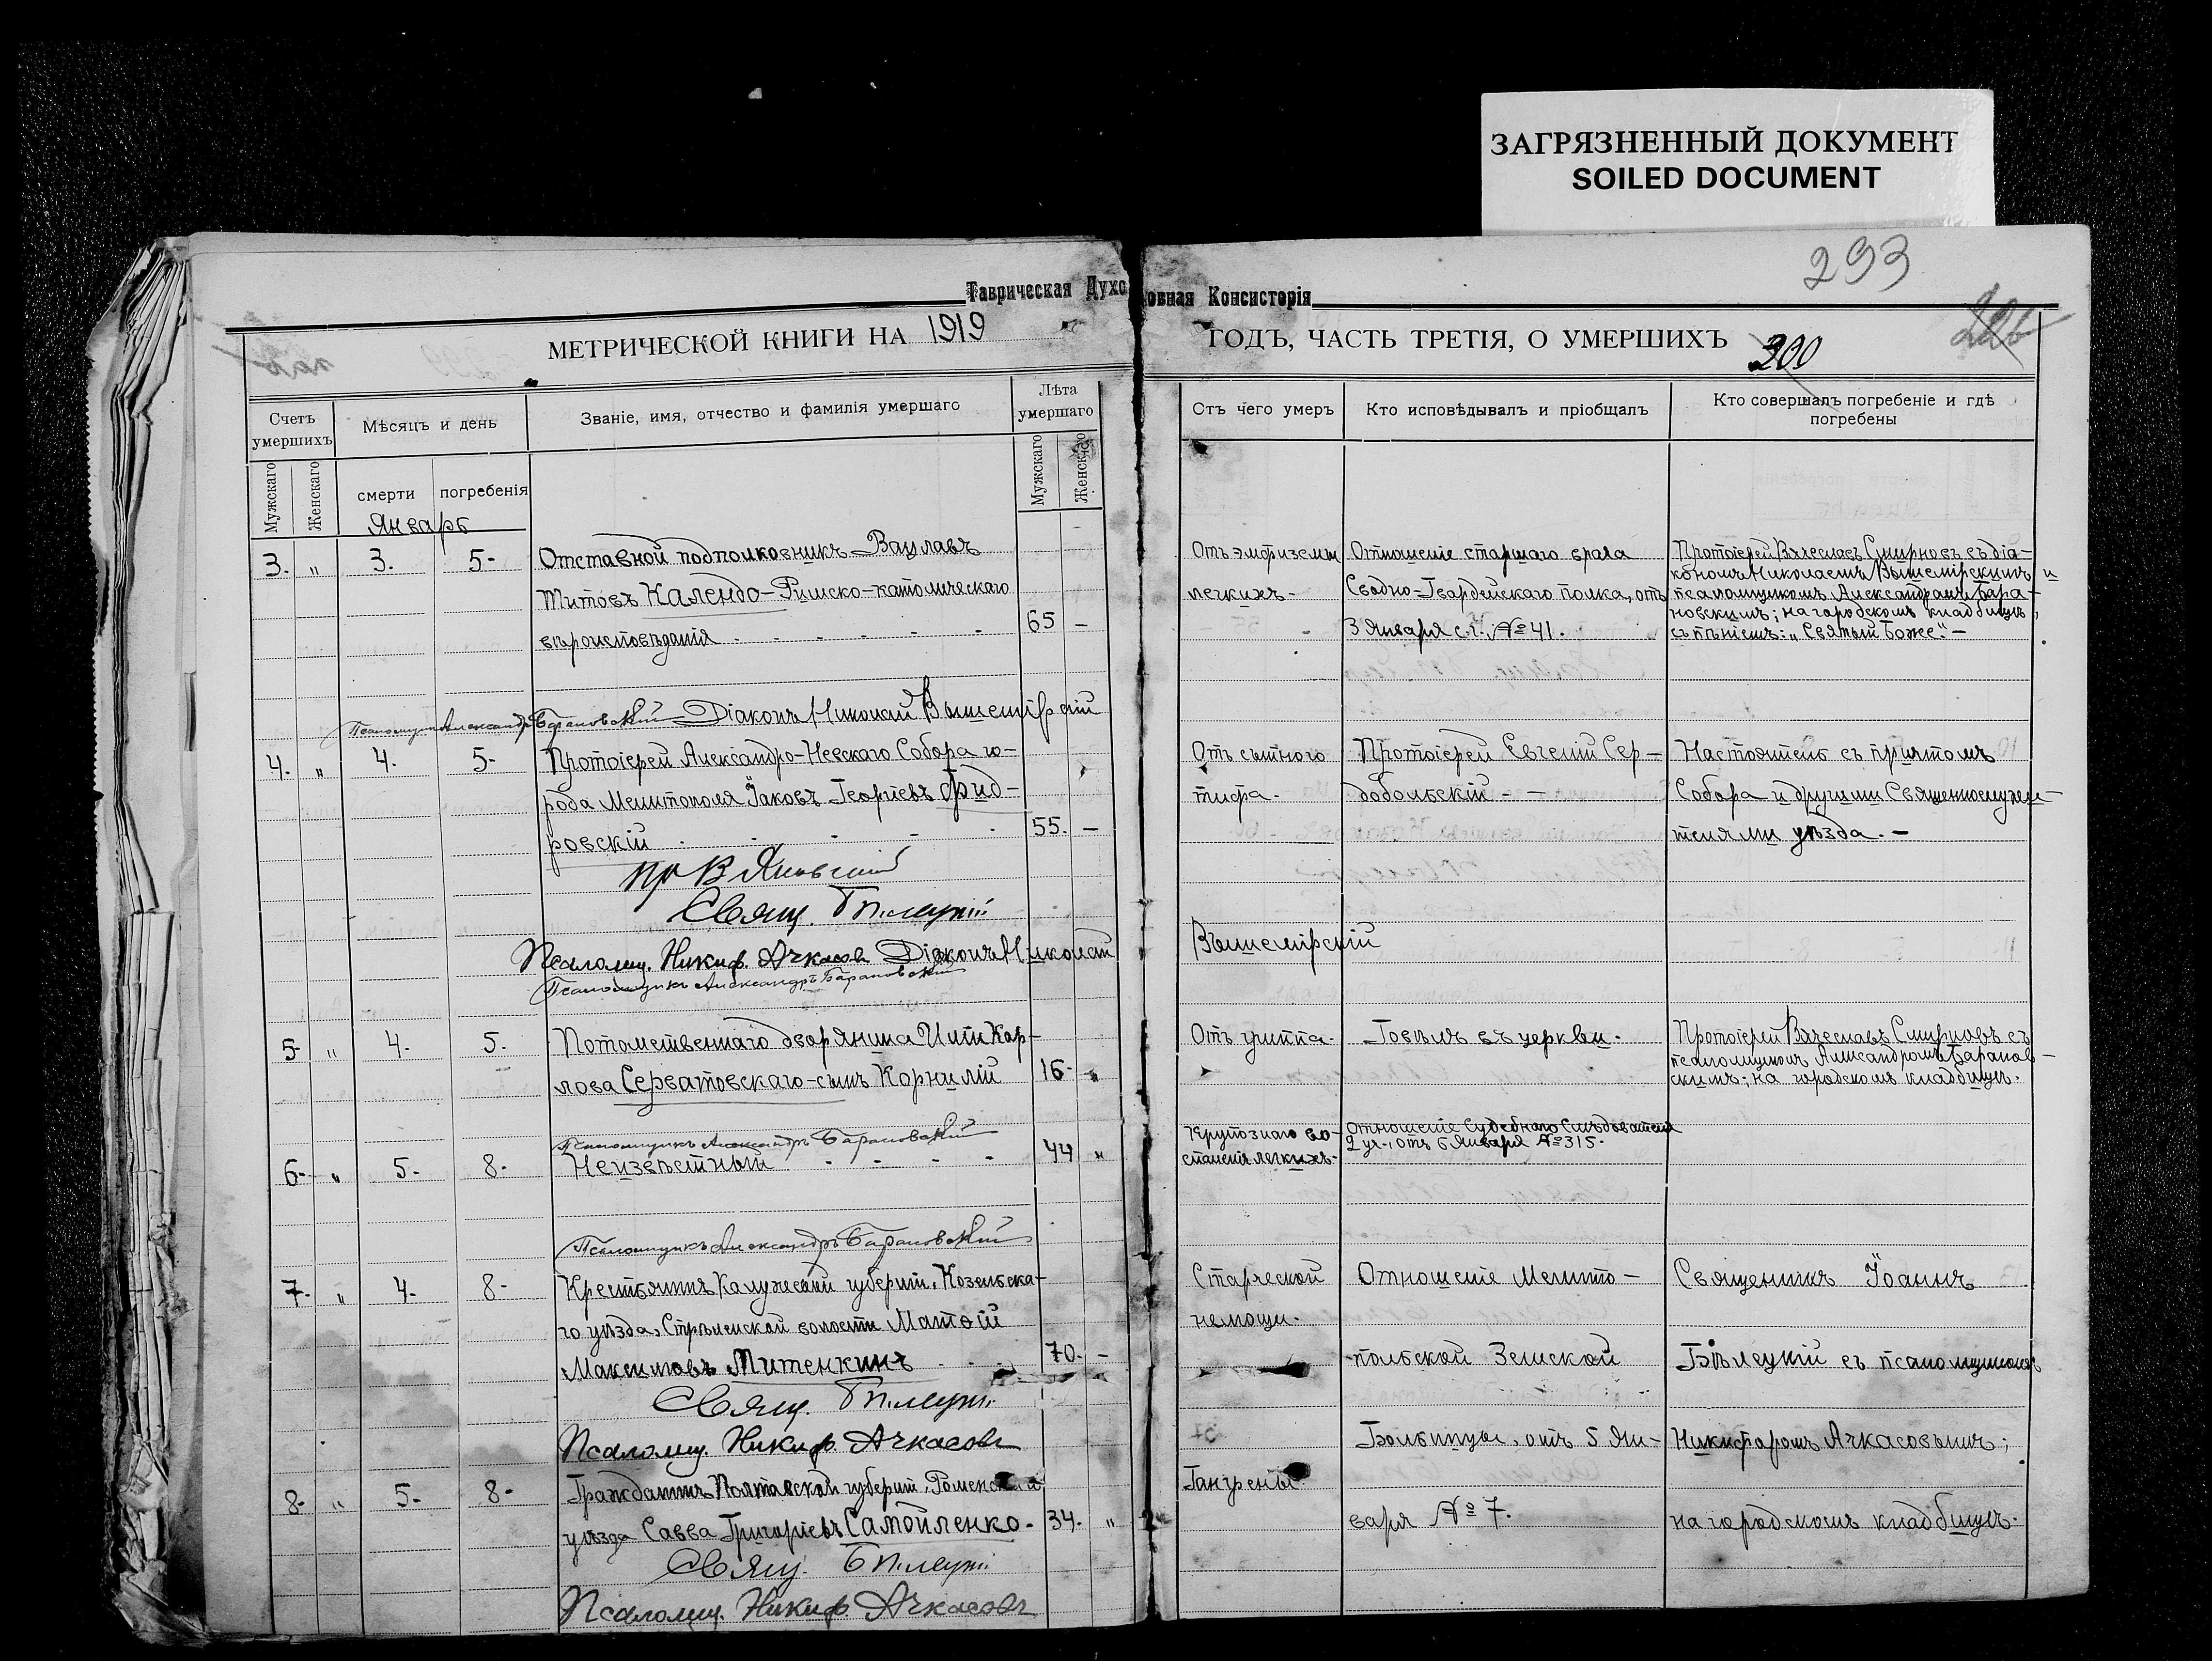 ЗАГРЯЗНЕННЫЙ ДОКУМЕНТ
SOILED DOCUMENT
293
Таврическая Духовная Консисторія
МЕТРИЧЕСКОЙ КНИГИ НА 1919 ГОДЪ, ЧАСТЬ ТРЕТІЯ, О УМЕРШИХЪ
200
226
Счетъ умершихъ
Мѣсяцъ и день
Званіе, имя, отчество и фамилія умершаго
Лѣта умершаго
Отъ чего умеръ
Кто исповѣдывалъ и пріобщалъ
Кто совершалъ погребеніе и гдѣ погребены
Мужскаго
Женскаго
смерти
погребенія
Мужскаго
Женскаго
Январь
3. " 3. 5-
Отставной подполковникъ Вацлавъ
Титовъ Календо-Римско-католическаго
вѣроисповѣданія
65 -
Отъ эмфиземы
легкихъ-
Отношеніе старшаго врача
Сводно-Гвардейскаго полка, отъ
3 Января с.г. № 41.
Протоіерей Вячеславъ Смирновъ съ діа-
кономъ Николаемъ Вышемірскимъ и
псаломщикомъ Александромъ Бара-
новскимъ; на городскомъ кладбищѣ,
съ пѣніемъ: „Святый Боже." -
Псаломщикъ Александръ Барановскій Діаконъ Николай Вышемірскій
4. " 4. 5-
Протоіерей Александро-Невскаго Собора го-
рода Мелитополя Іаковъ Георгіевъ Фид-
ровскій
55. -
Отъ сыпного
тифа.
Протоіерей Евгеній Сер-
добольскій - -
Настоятель съ причтомъ
Собора и другими Священнослужи-
телями уѣзда. -
Свящ. Бѣлецкій
Псаломщ. Никиф. Ачкасовъ Діаконъ Николай Вышемірскій
Псаломщикъ Александръ Барановскій
5- " 4. 5.
Потомственнаго дворянина Иліи Кор-
лова Серватовскаго-сынъ Корнилій
16- "
Отъ гриппа.
Говѣлъ въ церкви.
Протоіерей Вячеславъ Смирновъ съ
псаломщикомъ Александромъ Баранов-
скимъ; на городскомъ кладбищѣ.
Псаломщикъ Александръ Барановскій
6- " 5. 8.
Неизвѣстный
44 "
Крупознаго во-
спаленія легкихъ-
Отношеніе Судебнаго Слѣдователя
2 уч. отъ 6 Января № 315.
Псаломщикъ Александръ Барановскій
7- " 4. 8-
Крестьянинъ Калужской губерніи, Козельска-
го уѣзда, Стрѣленской волости Матѳій
Максимовъ Митенкинъ
70- -
Старческой
немощи.
Отношеніе Мелито-
польской Земской
Больницы, отъ 5 Ян-
варя № 7.
Священникъ Іоаннъ
Бѣлецкій съ псаломщикомъ
Никифоромъ Ачкасовымъ;
на городскомъ кладбищѣ.
Свящ. Бѣлецкій
Псаломщ. Никиф. Ачкасовъ
8- " 5- 8-
Гражданинъ Полтавской губерніи, Роменскаго
уѣзда Савва Григоріевъ Самойленко-
34. "
Гангрены.
Свящ. Бѣлецкій
Псаломщ. Никиф. Ачкасовъ